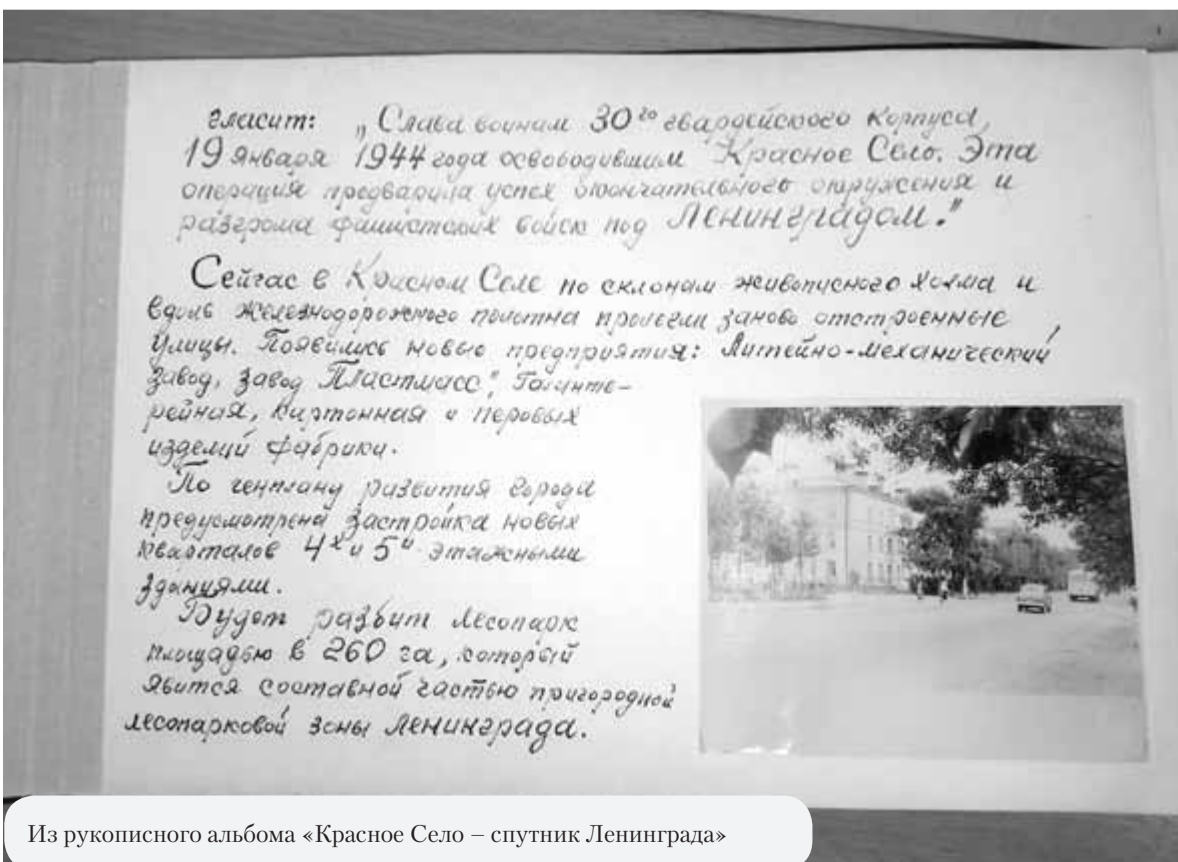 гласит: „Слава воинам 30го гвардейского корпуса,
19 января 1944 года освободившим Красное Село. Эта
операция предварила успех окончательного окружения и
разгрома фашистских войск под Ленинградом."
Сейчас в Красном Селе по склонам живописного холма и
вдоль железнодорожного полотна пролегли заново отстроенные
улицы. Появились новые предприятия: Литейно-механический
завод, завод „Пластмасс", Галанте-
рейная, картонная и перовых
изделий фабрики.
По генплану развития города
предусмотрена застройка новых
кварталов 4х и 5и этажными
зданиями.
Будет разбит лесопарк
площадью в 260 га, который
явится составной частью пригородной
лесопарковой зоны Ленинграда.
Из рукописного альбома «Красное Село – спутник Ленинграда»